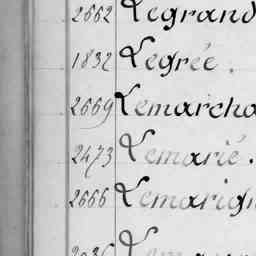 2662 Legrand
1832 Legrée.
2669 Lemarcha
2473 Lemarié.
2666 Lemarign